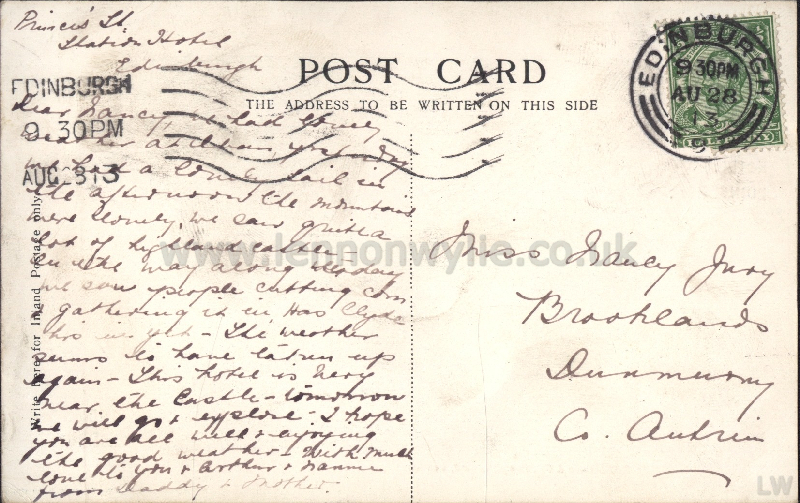 Princes St.
Station Hotel
Edinburgh
POST CARD
THE ADDRESS TO BE WRITTEN ON THIS SIDE
EDINBURGH
9 30PM
AUG 28 13
EDINBURGH
9 30PM
AU 28
13
Write here for Inland Postage only
Dear Nancy, we had lovely
weather at Oban yesterday
we had a lovely sail in
the afternoon the mountains
were lovely, we saw quite a
lot of highland cattle -
on the way along today
we saw people cutting corn
gathering it in Has Clyde
his in yet - The weather
seems to have taken up
again - This hotel is very
near the Castle - tomorrow
we will go & explore - I hope
you are all well & enjoying
the good weather - With much
love to you & Arthur & Nannie
from Daddy & Mother.
Miss Nancy Jury
Brooklands
Dunmurry
Co. Antrim
www.lennonwylie.co.uk
LW